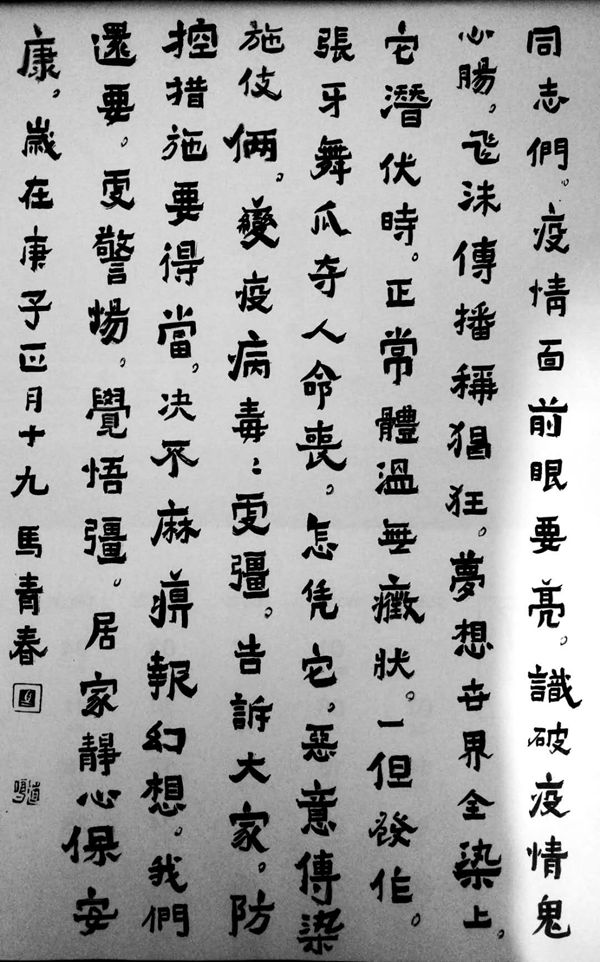 同志們。疫情面前眼要亮。識破疫情鬼
心腸。飛沫傳播稱猖狂。夢想世界全染上。
它潛伏時。正常體溫無癥狀。一但發作。
張牙舞爪奪人命喪。怎凭它。惡意傳染
施伎倆。變疫病毒:更彊。告訴大家。防
控措施要得當。决不麻痹報幻想。我們
還要。更警惕。覺悟彊。居家靜心保安
康。歲在庚子正月十九馬青春